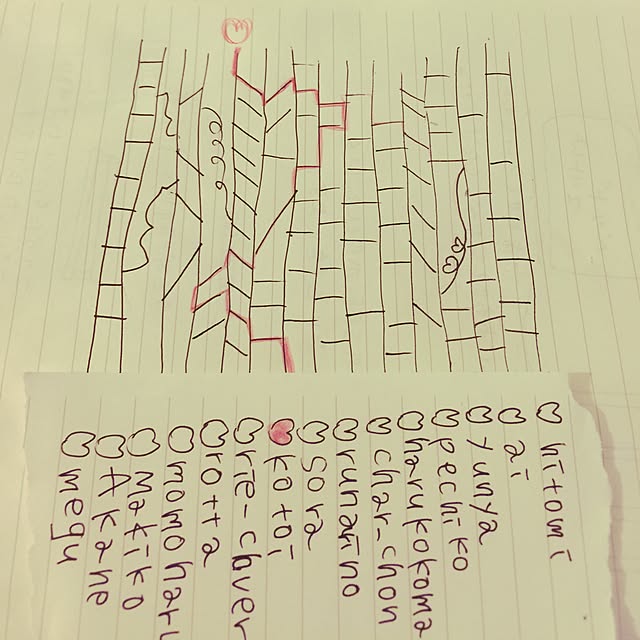 hitomi
ai
yunya
pechiko
harukokoma
char_chon
runarino
sora
kotoi
rie-clover
rotta
momoharu
Makiko
Akane
megu